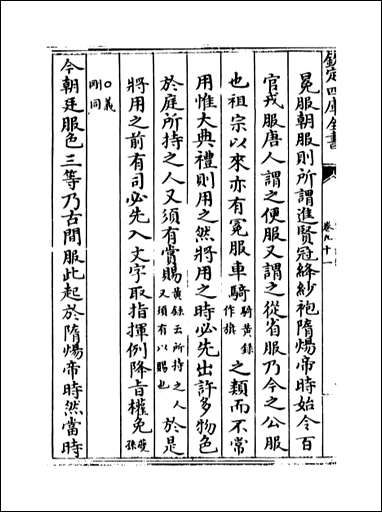 欽定四庫全書
卷九十一
冕服朝服則所謂進賢冠絳紗袍隋煬帝時始令百
官戎服唐人謂之便服又謂之從省服乃今之公服
也祖宗以來亦有冕服車騎騎黄錄作旗之類而不常
用惟大典禮則用之然將用之時必先出許多物色
於庭所持之人又須有賞賜黄錄云所持之人又須有以賜也於是
將用之前有司必先入文字取指揮例降旨權免夔孫
○義剛同
今朝廷服色三等乃古間服此起於隋煬帝時然當時